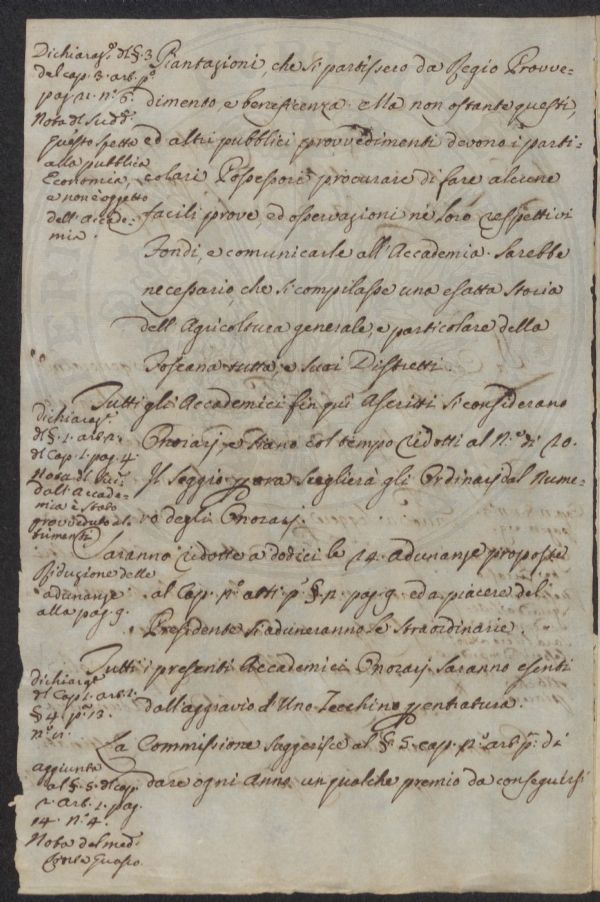 Dichiaraz.e del §. 3
del cap. 3. art. p.o
pag. 21. n.o 6.
Nota del Sud.o
questo spetta
alla pubblica
Economia,
e non è oggetto
dell'Accade-
mia.
Piantazioni, che si partissero da Regio Provve-
dimento, e beneficenza. Ma non ostante questi,
ed altri pubblici provvedimenti devono i parti-
colari Possessori procurare di fare alcune
facili prove, ed osservazioni nè loro respettivi
Fondi, e comunicarle all'Accademia. Sarebbe
necessario, che si compilasse una esatta Storia
dell'Agricoltura generale, e particolare della
Toscana tutta, e suoi Distretti.
Dichiaraz.
del §. 1. art. 2.
del Cap. 1. pag. 4.
Nota del
dall'Accade-
mia è stato
provveduto al-
trimenti
Tutti gli Accademici fin quì Ascritti si considerano
Onorarj, e siano col tempo ridotti al N.o di 20.
Il Seggio per ora sceglierà gli Ordinarj dal Nume-
ro degli Onorarj.
Riduzione delle
adunanze
alla pag. 9.
Saranno ridotte a dodici le 24. adunanze proposte
al Cap. p.o att: p.o §. 2. pag. 9. ed a piacere del
Presidente si aduneranno le straordinarie.
Dichiaraz.e
del Cap. 2. art. 2.
§ 4. p.a 13.
n.o 11.
Tutti i presenti Accademici Onorarj saranno esenti
dall'aggravio d'Uno Zecchino per entratura.
aggiunta
al §. 5. del cap.
2. art. 1. pag.
14. n.o 4.
Nota del med.
La Commissione suggerisce al § 5. cap. 2.o art. p.o di
dare ogni Anno un qualche premio da conseguirsi